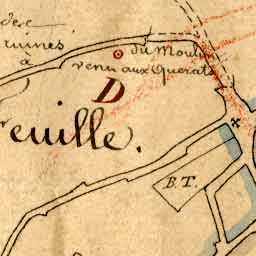 ruines
du Moulin
à
venu aux Querats
D
euille.
B.T.